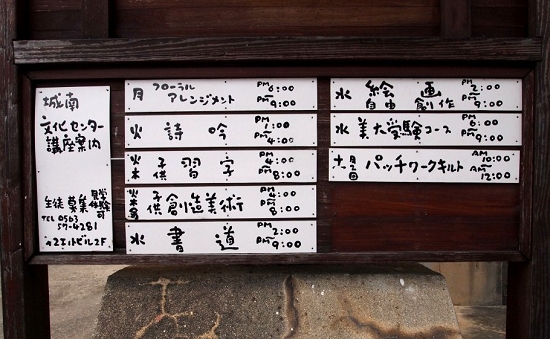 城南
文化センター
講座案内
生徒募集 見学体験可
TEL 0563
57-4281
月 フローラル アレンジメント PM 6:00 PM 9:00
火 詩吟 PM 1:00 PM 4:00
火木 子供 習字 PM 4:00 PM 8:00
子供 創造美術 PM 4:00 PM 8:00
水 書道 PM 2:00 PM 9:00
水 絵画 自由創作 PM 2:00 PM 9:00
水 美大受験コース PM 6:00 PM 9:00
パッチワークキルト AM 10:00 AM 12:00